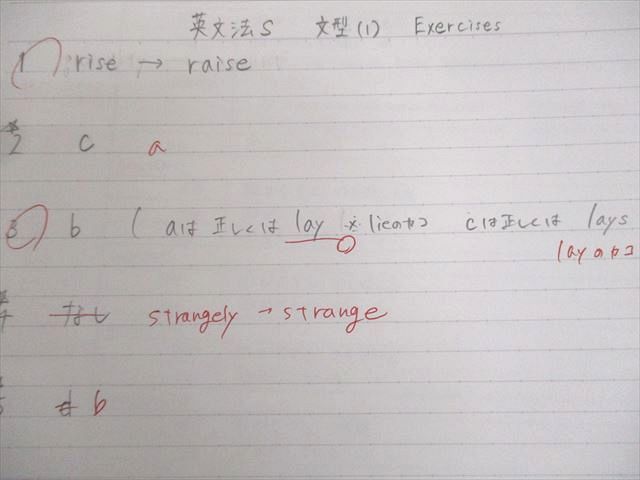 英文法S 文型(1) Exercises
1 rise → raise
2 c a
3 b ( aは正しくは lay ※lieのカコ cは正しくは lays
layのカコ
4 なし strangely → strange
b